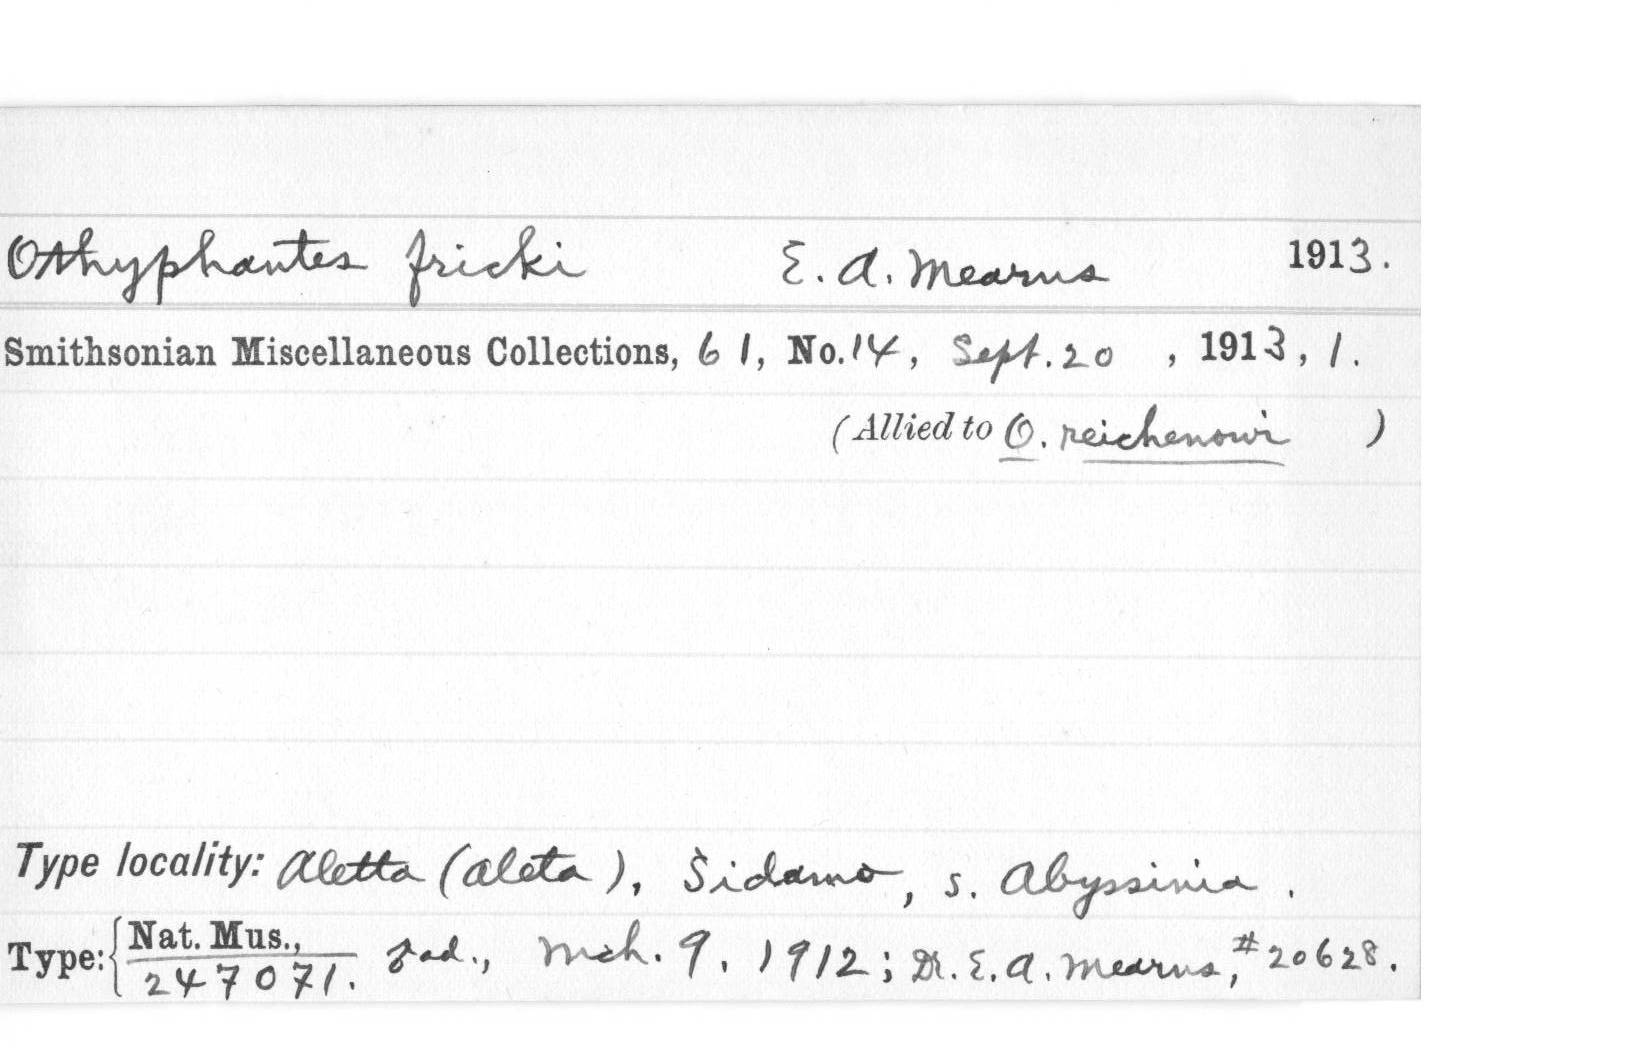 Othyphantes fricki E. A. Mearns 1913.
Smithsonian Miscellaneous Collections, 61, No. 14, Sept. 20 , 1913, 1.
(Allied to O. reichenowi )
Type locality: Aletta (Aleta), Sidamo, s. Abyssinia.
Type: { Nat. Mus., ad., Mch. 9, 1912; Dr. E. A. Mearns, #20628.
247071.